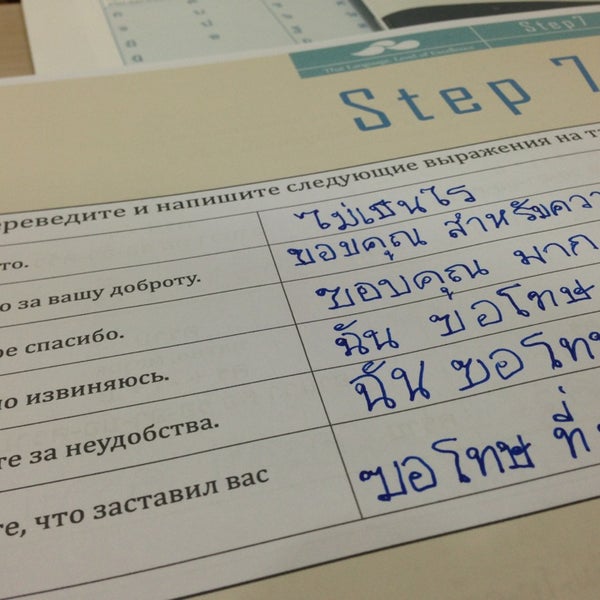 Step7
The Language Land of Excellence
Step 7
ереведите и напишите следующие выражения на т
то. ไม่เป็นไร
о за вашу доброту. ขอบคุณ สำหรับควา
ое спасибо. ขอบคุณ มาก
но извиняюсь. ฉัน ขอโทษ
те за неудобства. ฉัน ขอโทษ
те, что заставил вас ขอโทษ ที่